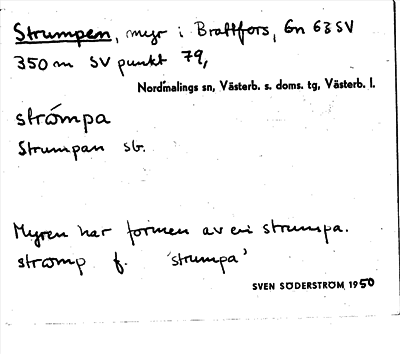 Strumpen, myr i Brattfors, Gn 63 SV
350 m SV punkt 79,
Nordmalings sn, Västerb. s. doms. tg, Västerb. l.
strómpa
Strumpan sb.
Myren har formen av en strumpa.
strømp f. 'strumpa'
SVEN SÖDERSTRÖM 1950